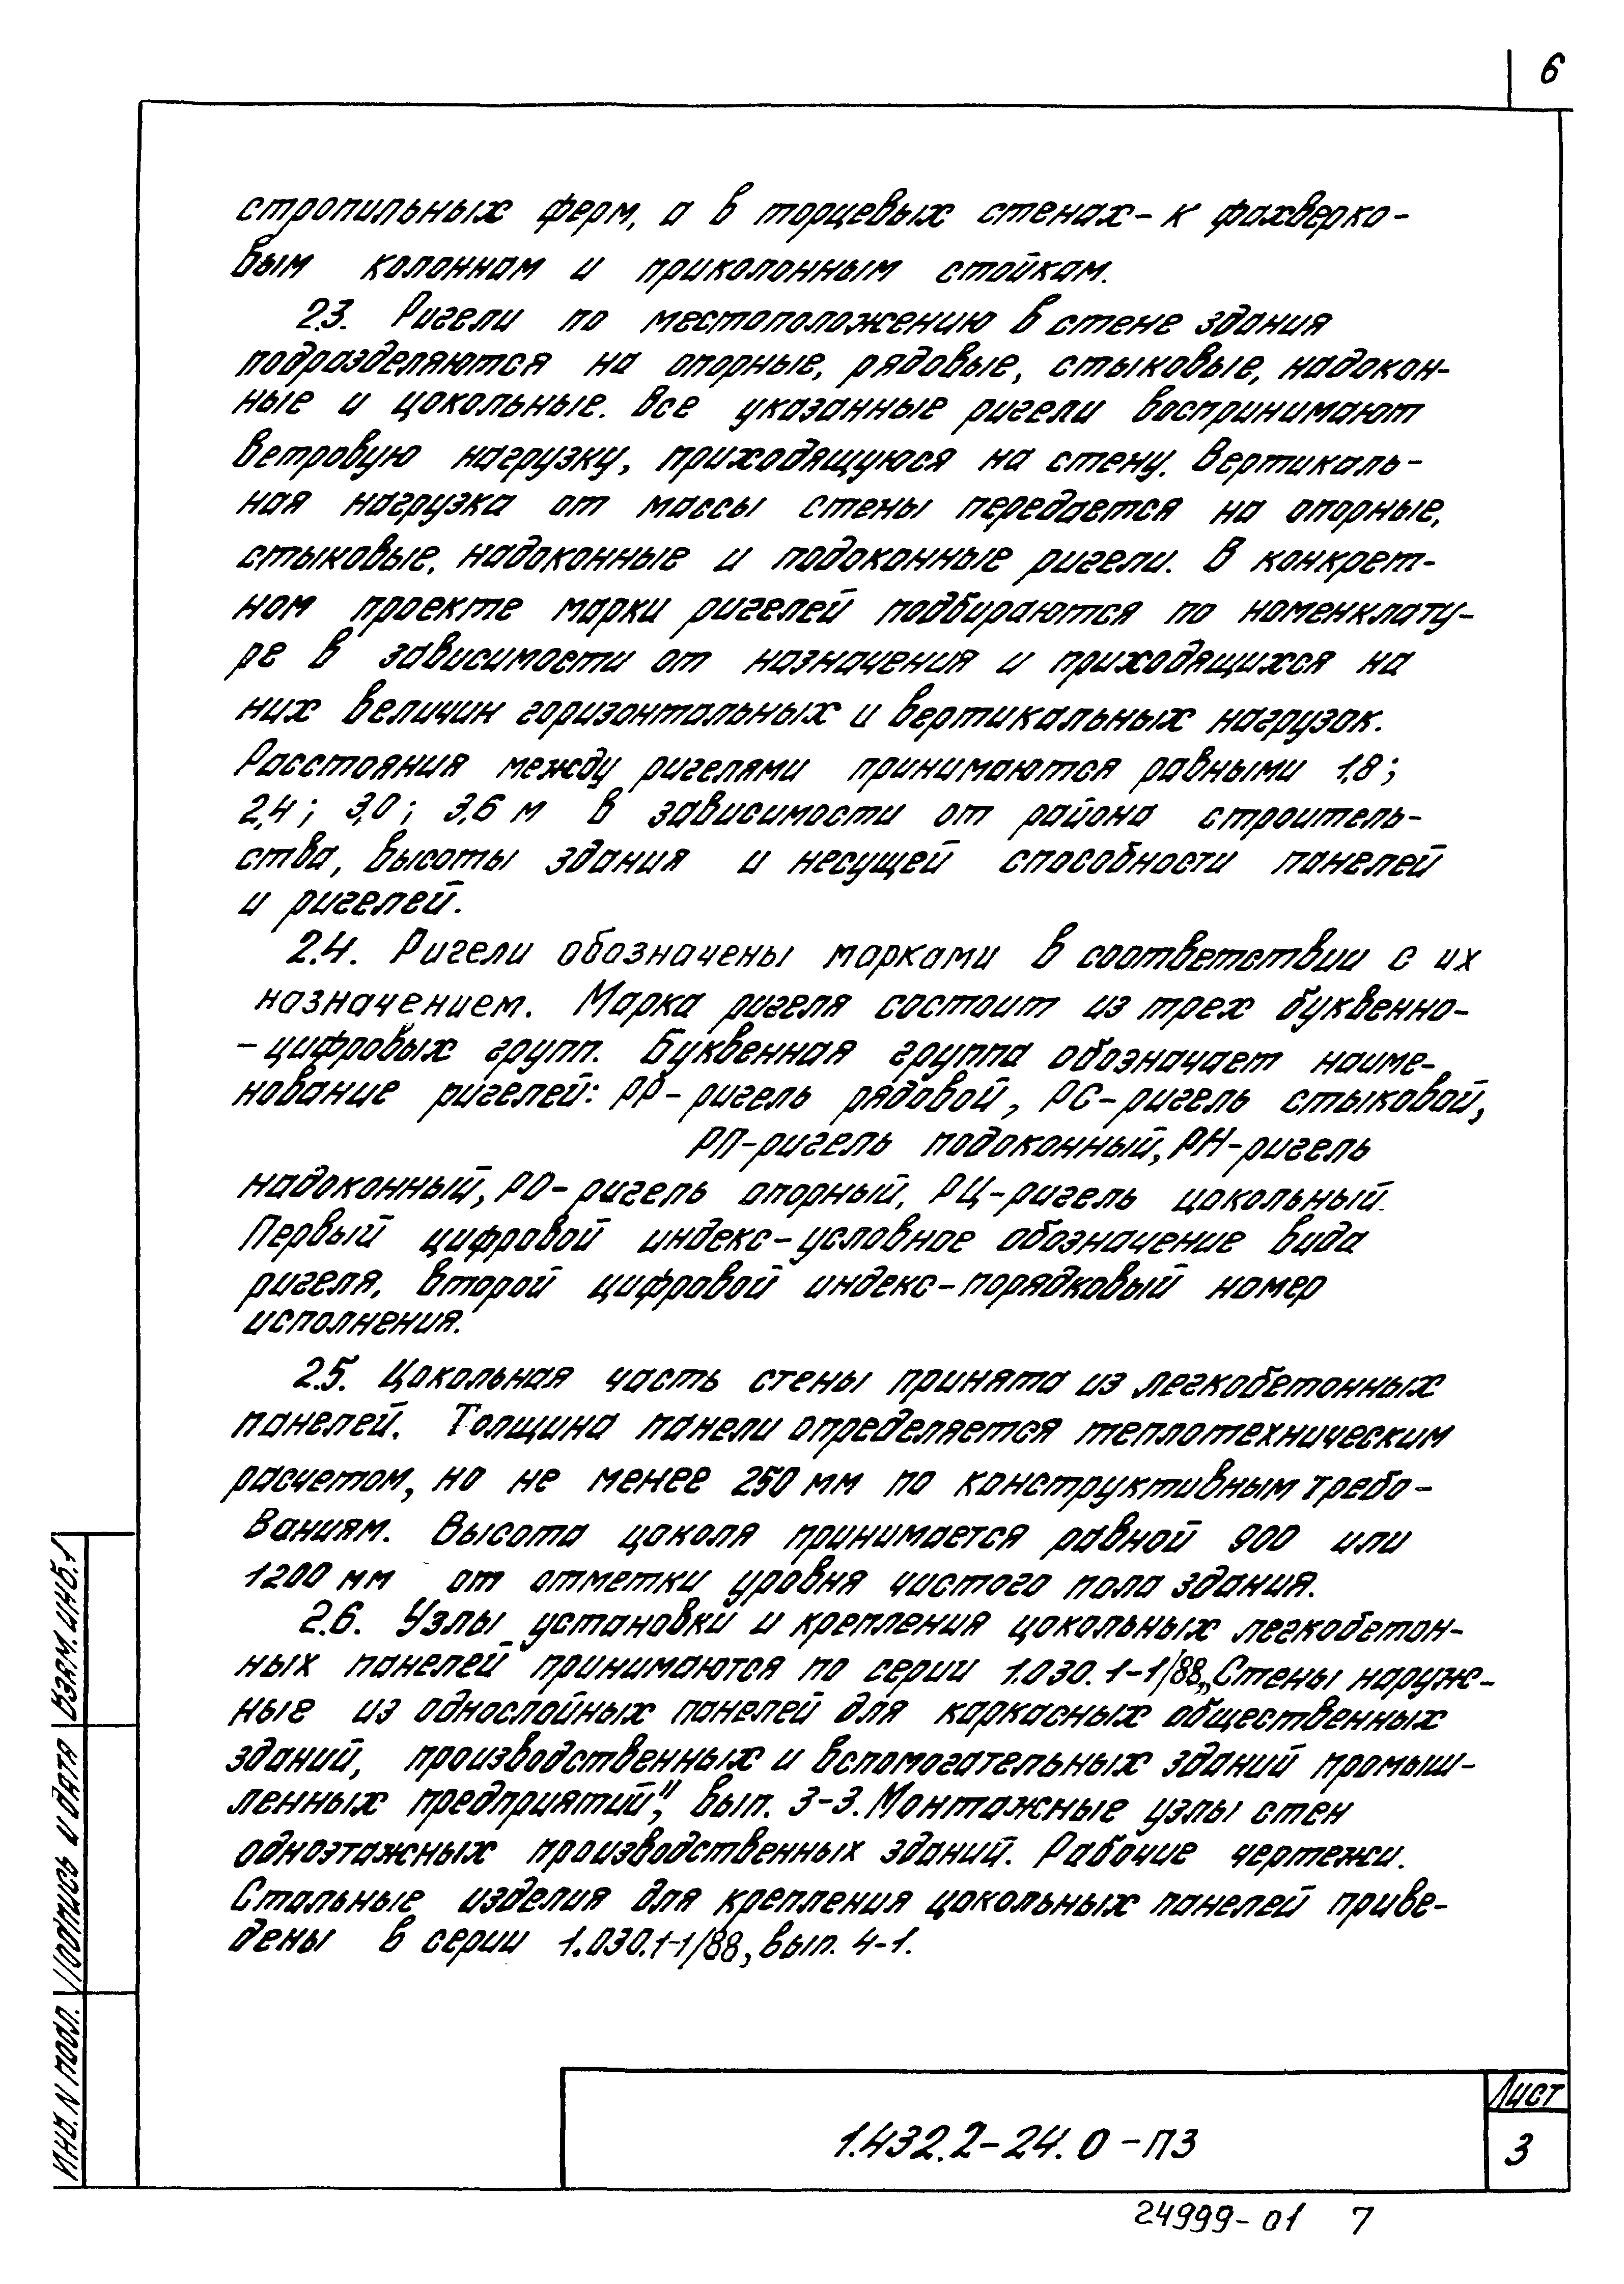 6
стропильных ферм, а в торцевых стенах- к фахверко-
вым колоннам и приколонным стойкам.
2.3. Ригели по местоположению в стене здания
подразделяются на опорные, рядовые, стыковые, надокон-
ные и цокольные. Все указанные ригели воспринимают
ветровую нагрузку, приходящуюся на стену. Вертикаль-
ная нагрузка от массы стены передается на опорные,
стыковые, надоконные и подоконные ригели. В конкрет-
ном проекте марки ригелей подбираются по номенклату-
ре в зависимости от назначения и приходящихся на
них величин горизонтальных и вертикальных нагрузок.
Расстояния между ригелями принимаются равными 1,8;
2,4; 3,0; 3,6 м в зависимости от района строитель-
ства, высоты здания и несущей способности панелей
и ригелей.
2.4. Ригели обозначены марками в соответствии с их
назначением. Марка ригеля состоит из трех буквенно-
-цифровых групп. Буквенная группа обозначает наиме-
нование ригелей: РР-ригель рядовой, РС-ригель стыковой,
РП-ригель подоконный, РН-ригель
надоконный, РО-ригель опорный, РЦ-ригель цокольный.
Первый цифровой индекс-условное обозначение вида
ригеля, второй цифровой индекс-порядковый номер
исполнения.
2.5. Цокольная часть стены принята из легкобетонных
панелей. Толщина панели определяется теплотехническим
расчетом, но не менее 250 мм по конструктивным требо-
ваниям. Высота цоколя принимается равной 900 или
1200 мм от отметки уровня чистого пола здания.
2.6. Узлы установки и крепления цокольных легкобетон-
ных панелей принимаются по серии 1.030.1-1/88 „Стены наруж-
ные из однослойных панелей для каркасных общественных
зданий, производственных и вспомогательных зданий промыш-
ленных предприятий", вып. 3-3. Монтажные узлы стен
одноэтажных производственных зданий. Рабочие чертежи.
Стальные изделия для крепления цокольных панелей приве-
дены в серии 1.030.1-1/88, вып. 4-1.
Взам. инв. №
Подпись и дата
Инв. N подл.
1.432.2-24.0-ПЗ
Лист
3
24999-01 7